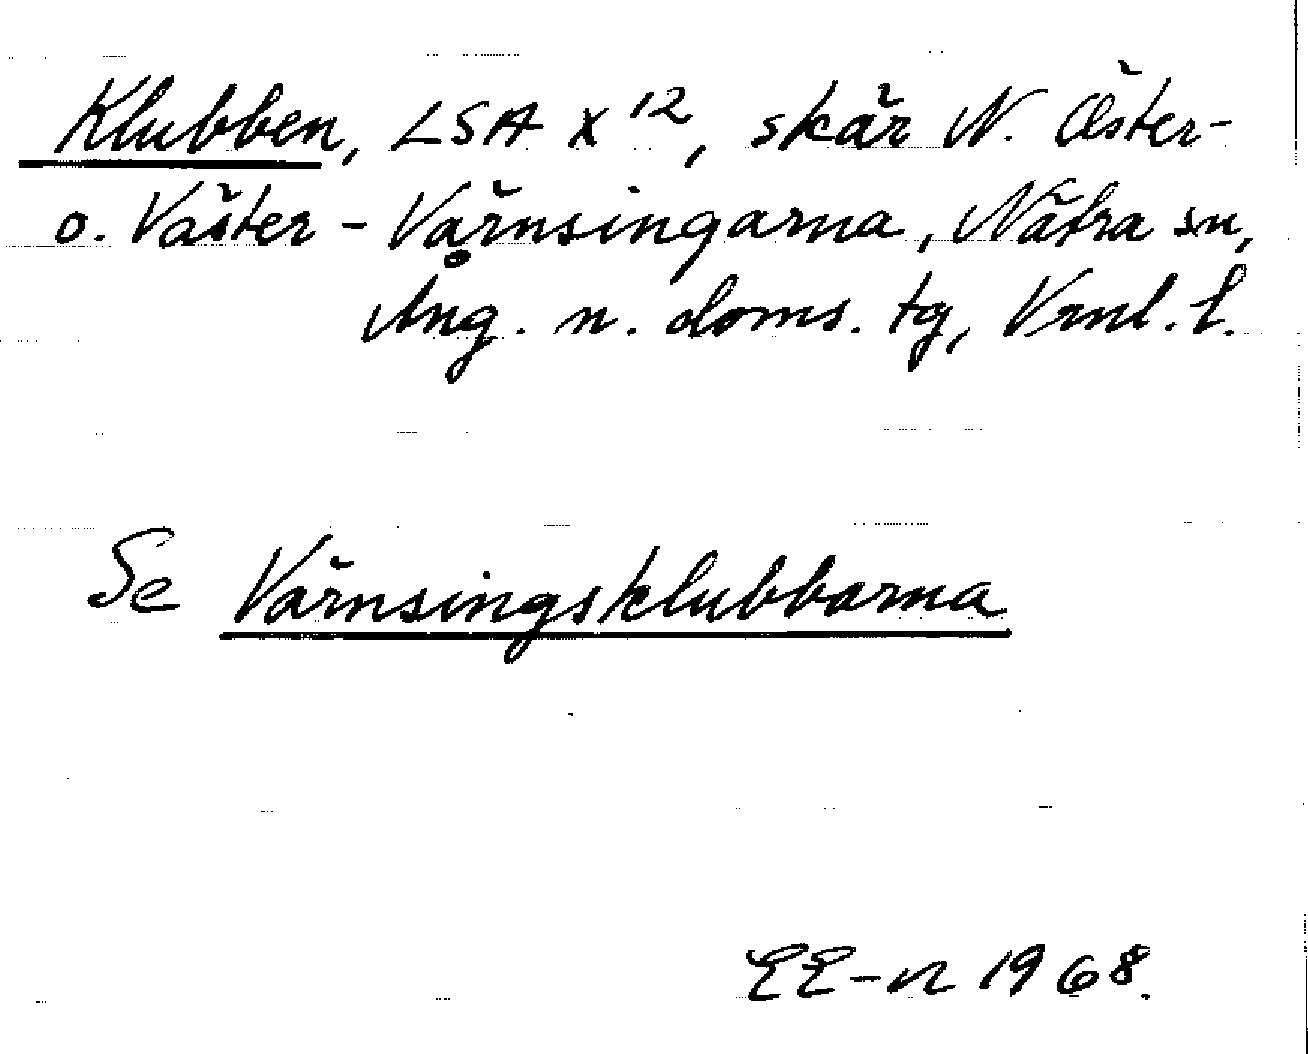 Klubben, LSA X 12, skär N. Öster-
o. Väster-Värnsingarna, Nätra sn,
Ång. n. doms. tg, Vrnl. l.
Se Värnsingsklubbarna
EE-n 1968.